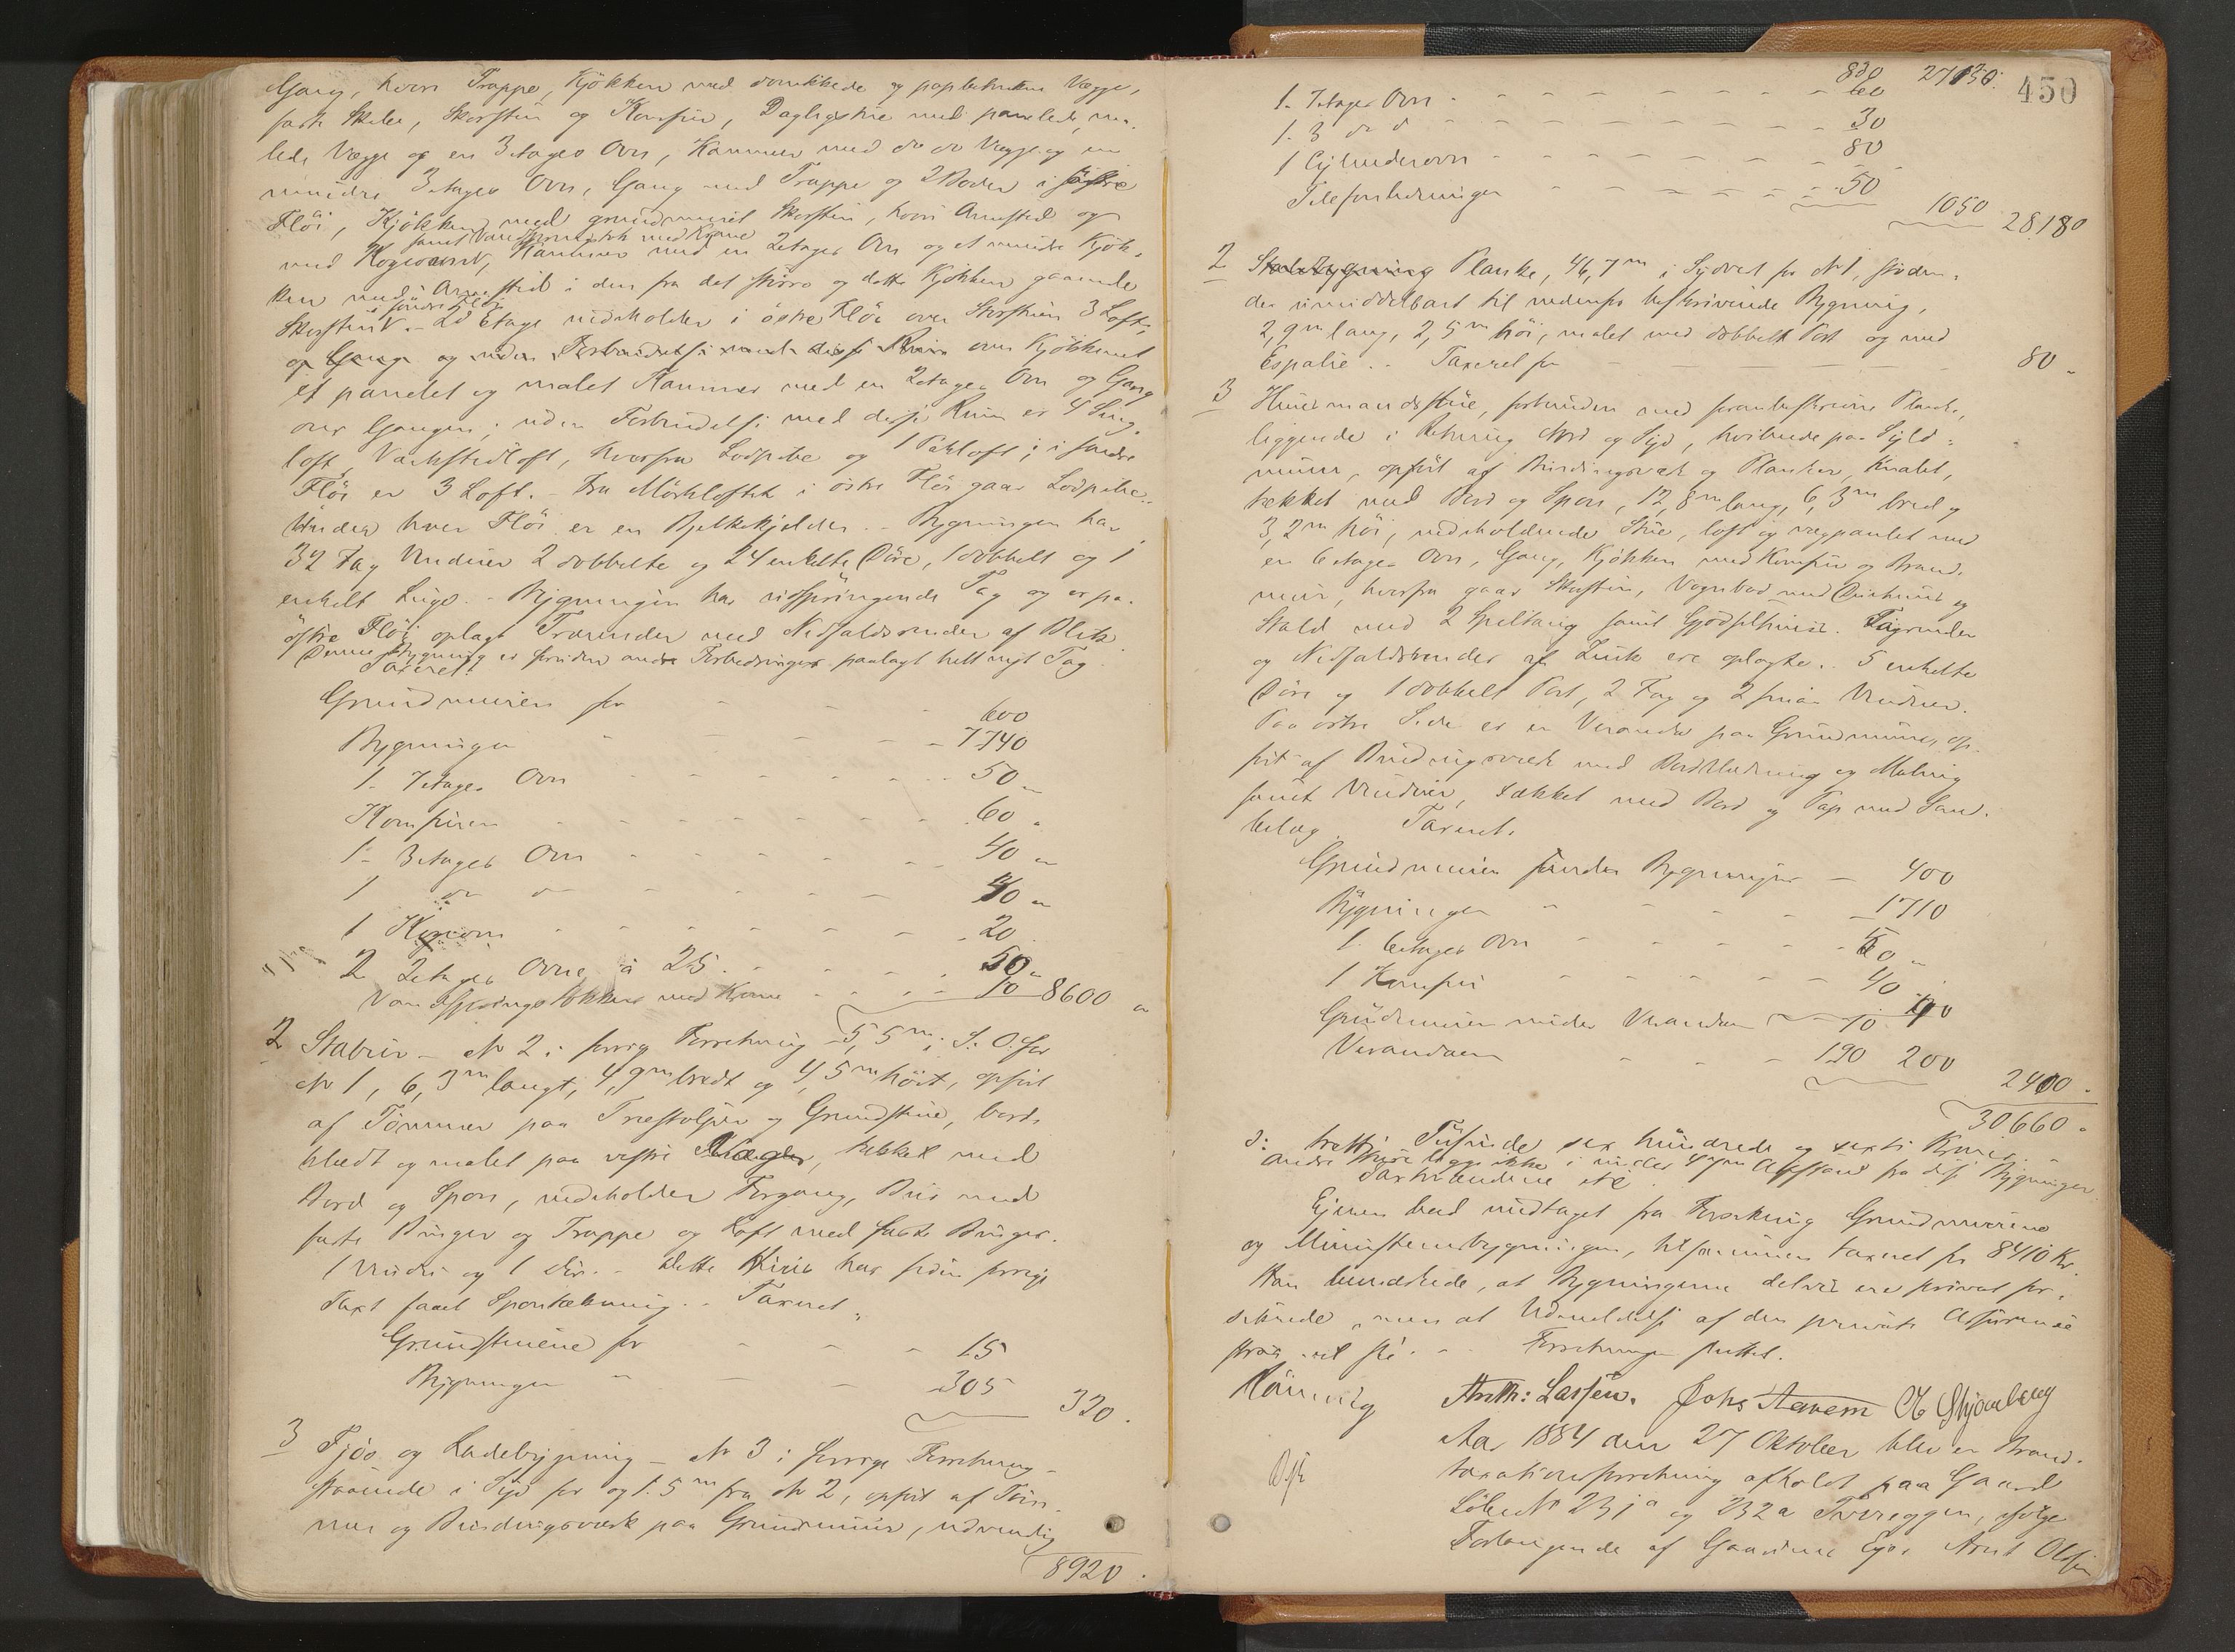 Gang, hvori Trappe, Kjökken med domkkede og papbetrukne Vægge,
faste Skabe, Skorsten og Komfur, Dagligstue med panelede, ma-
lede Vægge og en 3 etages Ovn, Kammer med do do Vægge og en
mindre 3 etages Ovn, Gang med Trappe og 2 Boder i søndre
Flöi, Kjökken med grundmuret Skorsten, hvori Arnested og
samt Vandspringstok med Krane
med Kogeovn, Kammer med en 2 etages Ovn og et mindre Kjök-
ken med Arnested i den fra det större og dette Kjökken gaaende
i söndre Flöi
Skorsten. - 2d Etage indeholder i östre Flöi over Storstuen 3 Loft,
og Gang og uden Forbindelse med disse Rum over Kjökkenet
et panelet og malet Kammer med en 2 etages Ovn og Gang
over Gangen; uden Forbindelse med disse Rum er 4 Seng-
loft, Værkstedloft, hvorfra Lodpibe og 1 Pakloft; i söndre
Flöi er 3 Loft. - Fra Mörkloftet i östre Flöi gaar Lodpibe.
Under hver Flöi er en Bjelkekjelder. - Bygningen har
32 Fag Vinduer 2 dobbelte og 24 enkelte Döre, 1 dobbelt og 1
enkelt Luge. - Bygningen har udspringende Tag og er paa
östre Flöi oplagt Trærender med Nedfaldsrender af Blik.
Denne Bygning er foruden andre Forbedringer paalagt helt nyt Tag.
Taxeret:
Grundmuren for - - - 600
Bygningen - - - - 7740
1- 7 etages Ovn - - - - 50 "
Komfuren - - - - 60 "
1- 3 etages Ovn - - - - 40 "
1 do do - - - - 40 "
1 Kogeovn - - - - 20
2 2 etages Ovne à 25. - - - 50 "
Vandspringstokken med Krane - - - 10 8600 "
2 Stabur - No 2 i forrige Forretning - 5,5 m i S.O. for
No 1, 6,3 m langt, 4,9 m bredt og 4,5 m höit, opfört
af Tömmer paa Træstolper og Grundstene, bord-
klædt og malet paa vestre Væg, tækket med
Bord og Spon, indeholder Forgang, Bur med
faste Binger og Trappe og Loft med faste Binger.
1 Vindu og 1 Dör. - Dette Huus har siden forrige
Taxt faaet Spontækning. - Taxeret:
Grundstenene for - - - 15
Bygningen " - - 305
320.
3 Fjös og Ladebygning - No 3 i forrige Forretning -
staaende i Syd for og 1.5 m fra No 2, opfört af Töm-
mer og Bindingsværk paa Grundmuur, udvendig
8920.
830 27130. 450
1- 7 etages Ovn - - - - - 60
1. 3 do d - - - - - 30
1 Cylinderovn - - - - - 80
Telefonledningen - - - - - 50
1050 28180
2 Stakebygning Planke, 46,7 m i Sydvest for No 1, stöden-
de umiddelbart til nedenfor beskrivende Bygning,
2,9 m lang, 2,5 m höi, malet med dobbelt Port og med
Espalie. - Taxeret for - - - - 80 "
3 Huusmandsstue, forbunden med foranbeskrevne Planke,
liggende i Retning Nord og Syd, hvilende paa Syld-
muur, opfört af Bindingsværk og Planker, kalket,
tækket med Bord og Spon, 12,8 m lang, 6,3 m bred og
3,2 m höi, indeholdende Stue, loft og vægpanelet med
en 6 etages Ovn, Gang, Kjökken med Komfur og Brand-
muur, hvorfra gaar Skorsten, Vognbod med Duehuus og
Stald med 2 Spiltaug samt Gjödselhuus. Tagrender
og Nedfaldsrender af Zink ere oplagte. 5 enkelte
Döre og 1 dobbelt Port, 2 Fag og 2 smaa Vinduer.
Paa östre Side er en Veranda paa Grundmuur, op-
fört af Bindingsværk med Bordklædning og Maling
samt Vinduer, tækket med Bord og Pap med Sand-
belæg. Taxeret:
Grundmuren under Bygningen - 400
Bygningen - - - - 1710
1. 6 etages Ovn - - - - 50 "
1 Komfur - - - - 40
Grundmuren under Verandaen 10
Verandaen - - - 190 200
2400 "
30660 "
ɔ: tretti Tusinde sex hundrede og sexti Kroner. -
andre Huse ligge ikke i under 47 m Afstand fra disse Bygninger
Tarkrænderne ete.
Ejeren bad undtaget fra Forsikring Grundmurene
og Ministeriebygningen, tilsammen taxeret for 8410 Kr.
Han bemærkede, at Bygningerne delvis ere privat for-
sikrede, men at Udmeldelse af den private Assurance
strax vil ske. - Forretningen sluttet.
Könnerdg Anth: Lassen. Johs Aarem O Gjönberg
Aar 1884 den 27 Oktober blev en Brand-
taxationsforretning afholdt paa Gaard
Löbe No 231 a og 232 a Tverreggen, ifölge
Forlangende af Gaardens Ejer Arnt Olsen